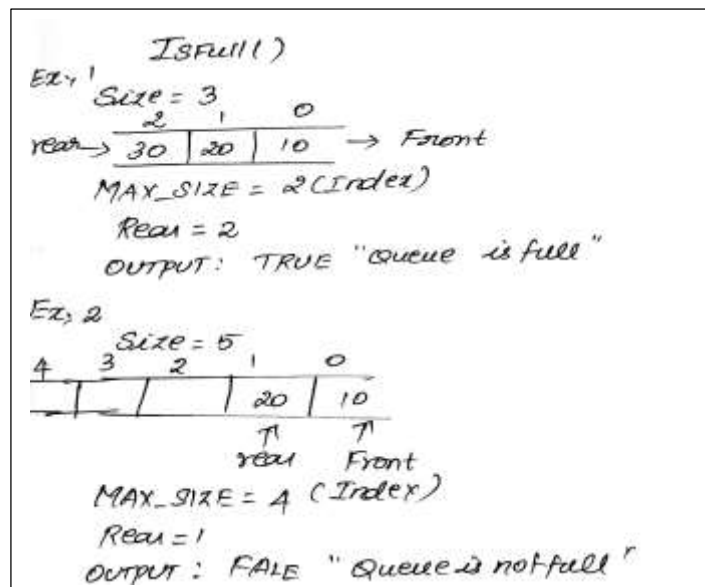 ISFull()
Ex, 1
Size = 3
2 1 0
rear→ 30 20 10 → Front
MAX_SIZE = 2 (Index)
Rear = 2
OUTPUT: TRUE "Queue is full"
Ex, 2
Size = 5
4 3 2 1 0
20 10
rear Front
MAX_SIZE = 4 (Index)
Rear = 1
OUTPUT: FALE "Queue is not full"